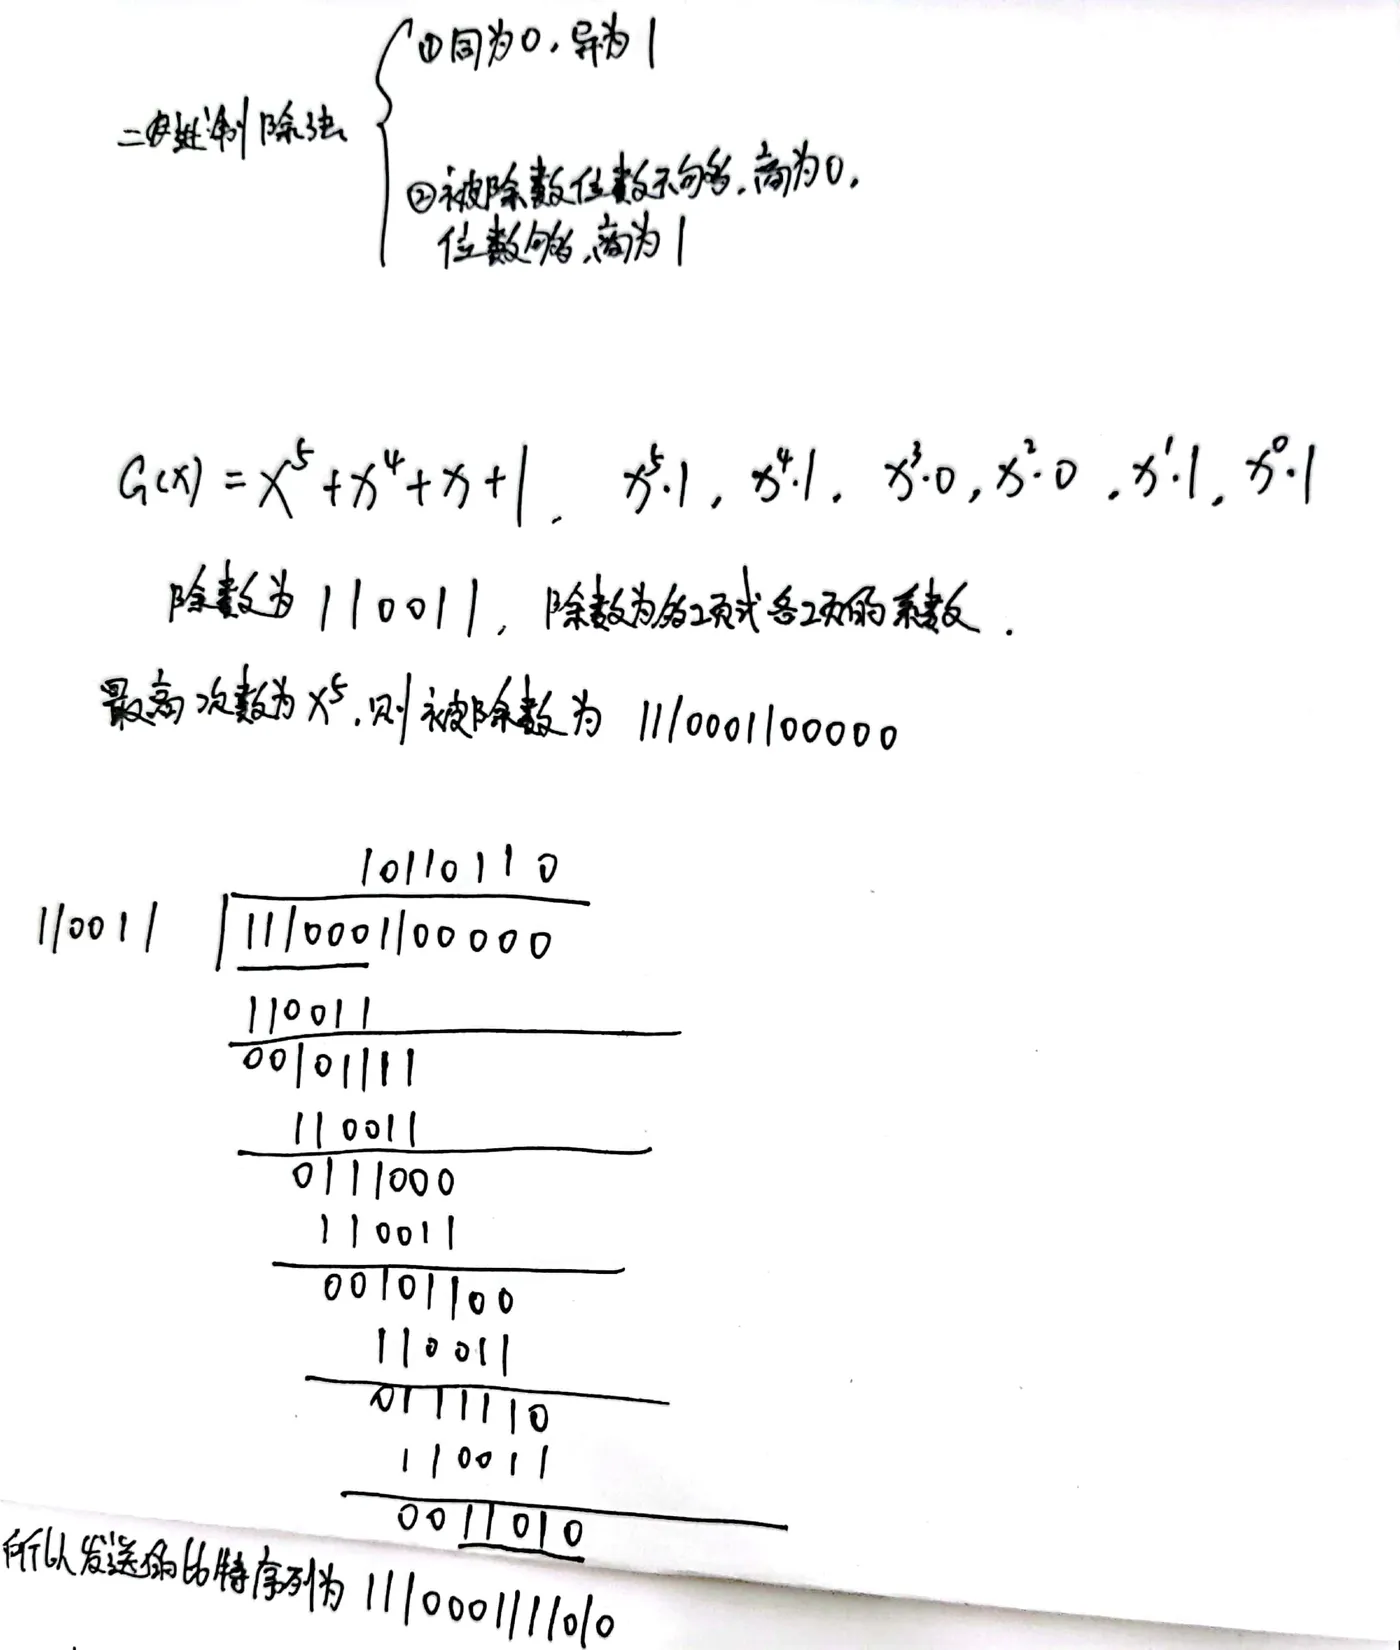 二进制除法
①同为0,异为1
②被除数位数不够,商为0,
位数够,商为1
G(x)=x⁵+x⁴+x+1, x⁵·1, x⁴·1, x³·0, x²·0, x¹·1, x⁰·1
除数为110011,除数为多项式各项的系数.
最高次数为x⁵,则被除数为 1110001100000
10110110
110011 1110001100000
110011
00101111
110011
0111000
110011
00101100
110011
0111110
110011
0011010
所以发送的比特序列为 1110001111010